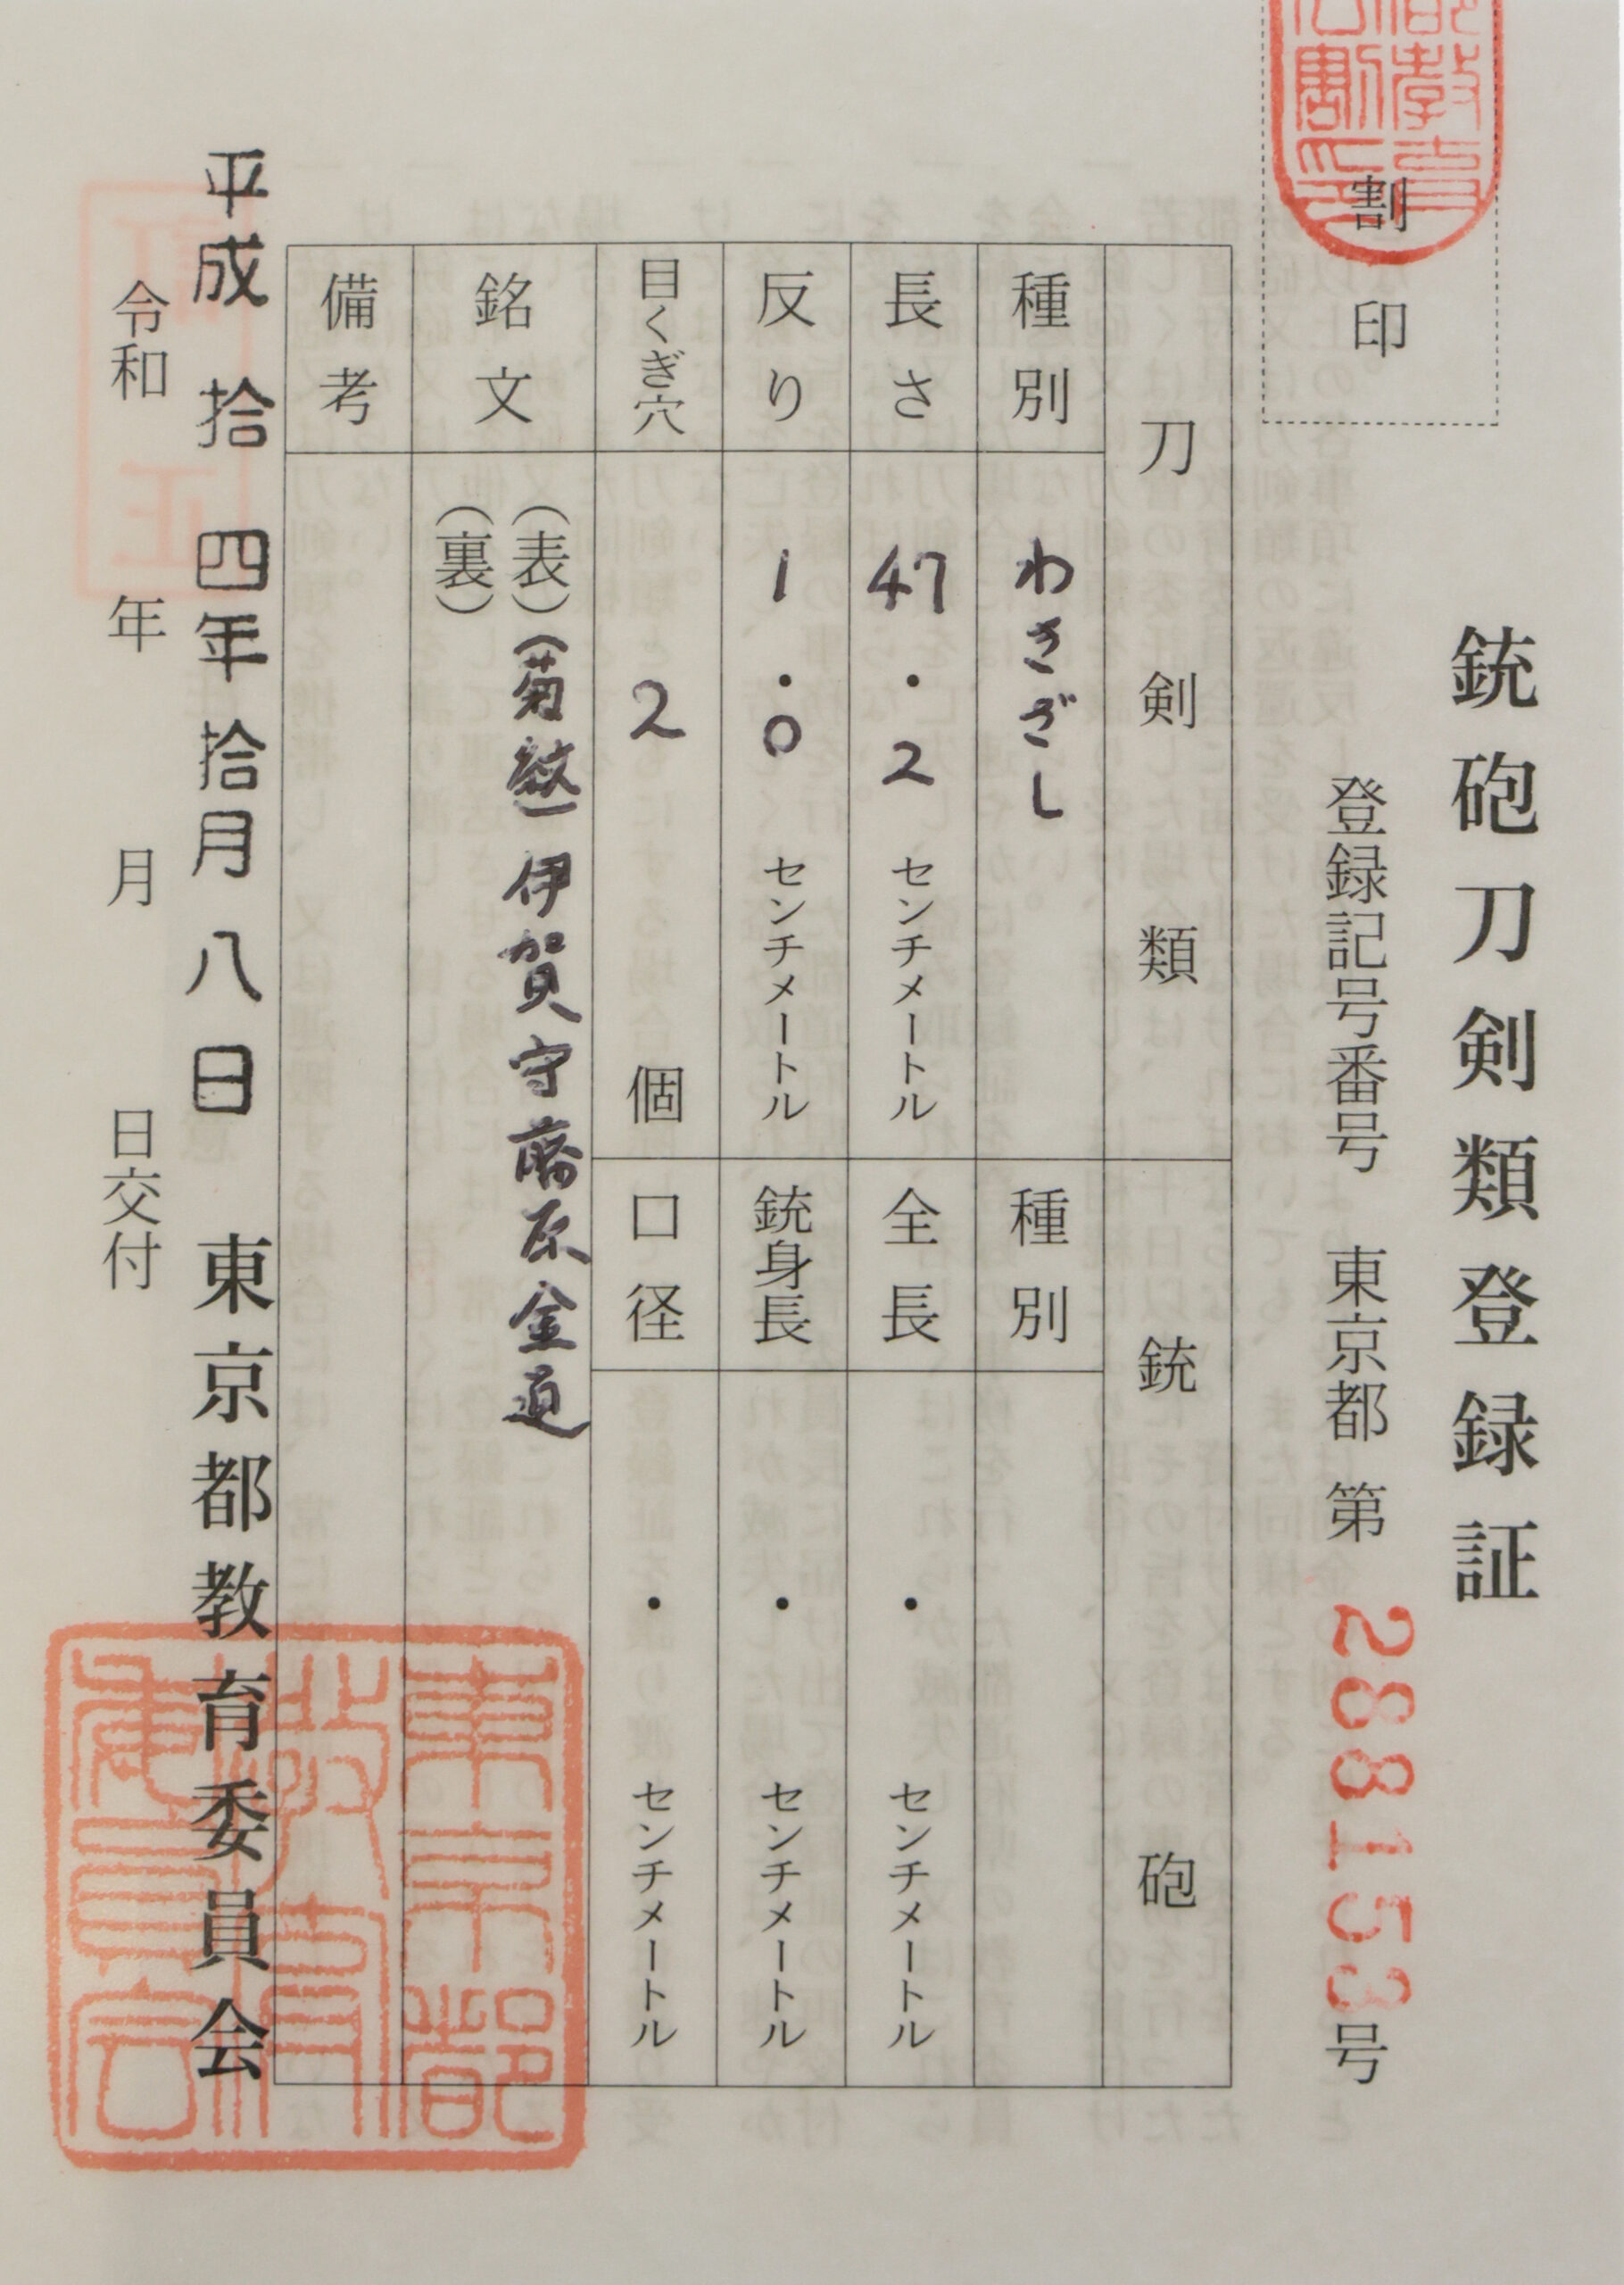 銃砲刀剣類登録証
割印
登録記号番号 東京都 第 288153号
刀剣類
銃砲
種別 わきざし
種別
長さ 47.2 センチメートル
全長 ・ センチメートル
反り 1.0 センチメートル
銃身長 ・ センチメートル
目くぎ穴 2 個
口径 ・ センチメートル
銘文 (表)(菊紋)伊賀守藤原金道
(裏)
備考
平成拾四年拾月八日 東京都教育委員会
令和 年 月 日交付